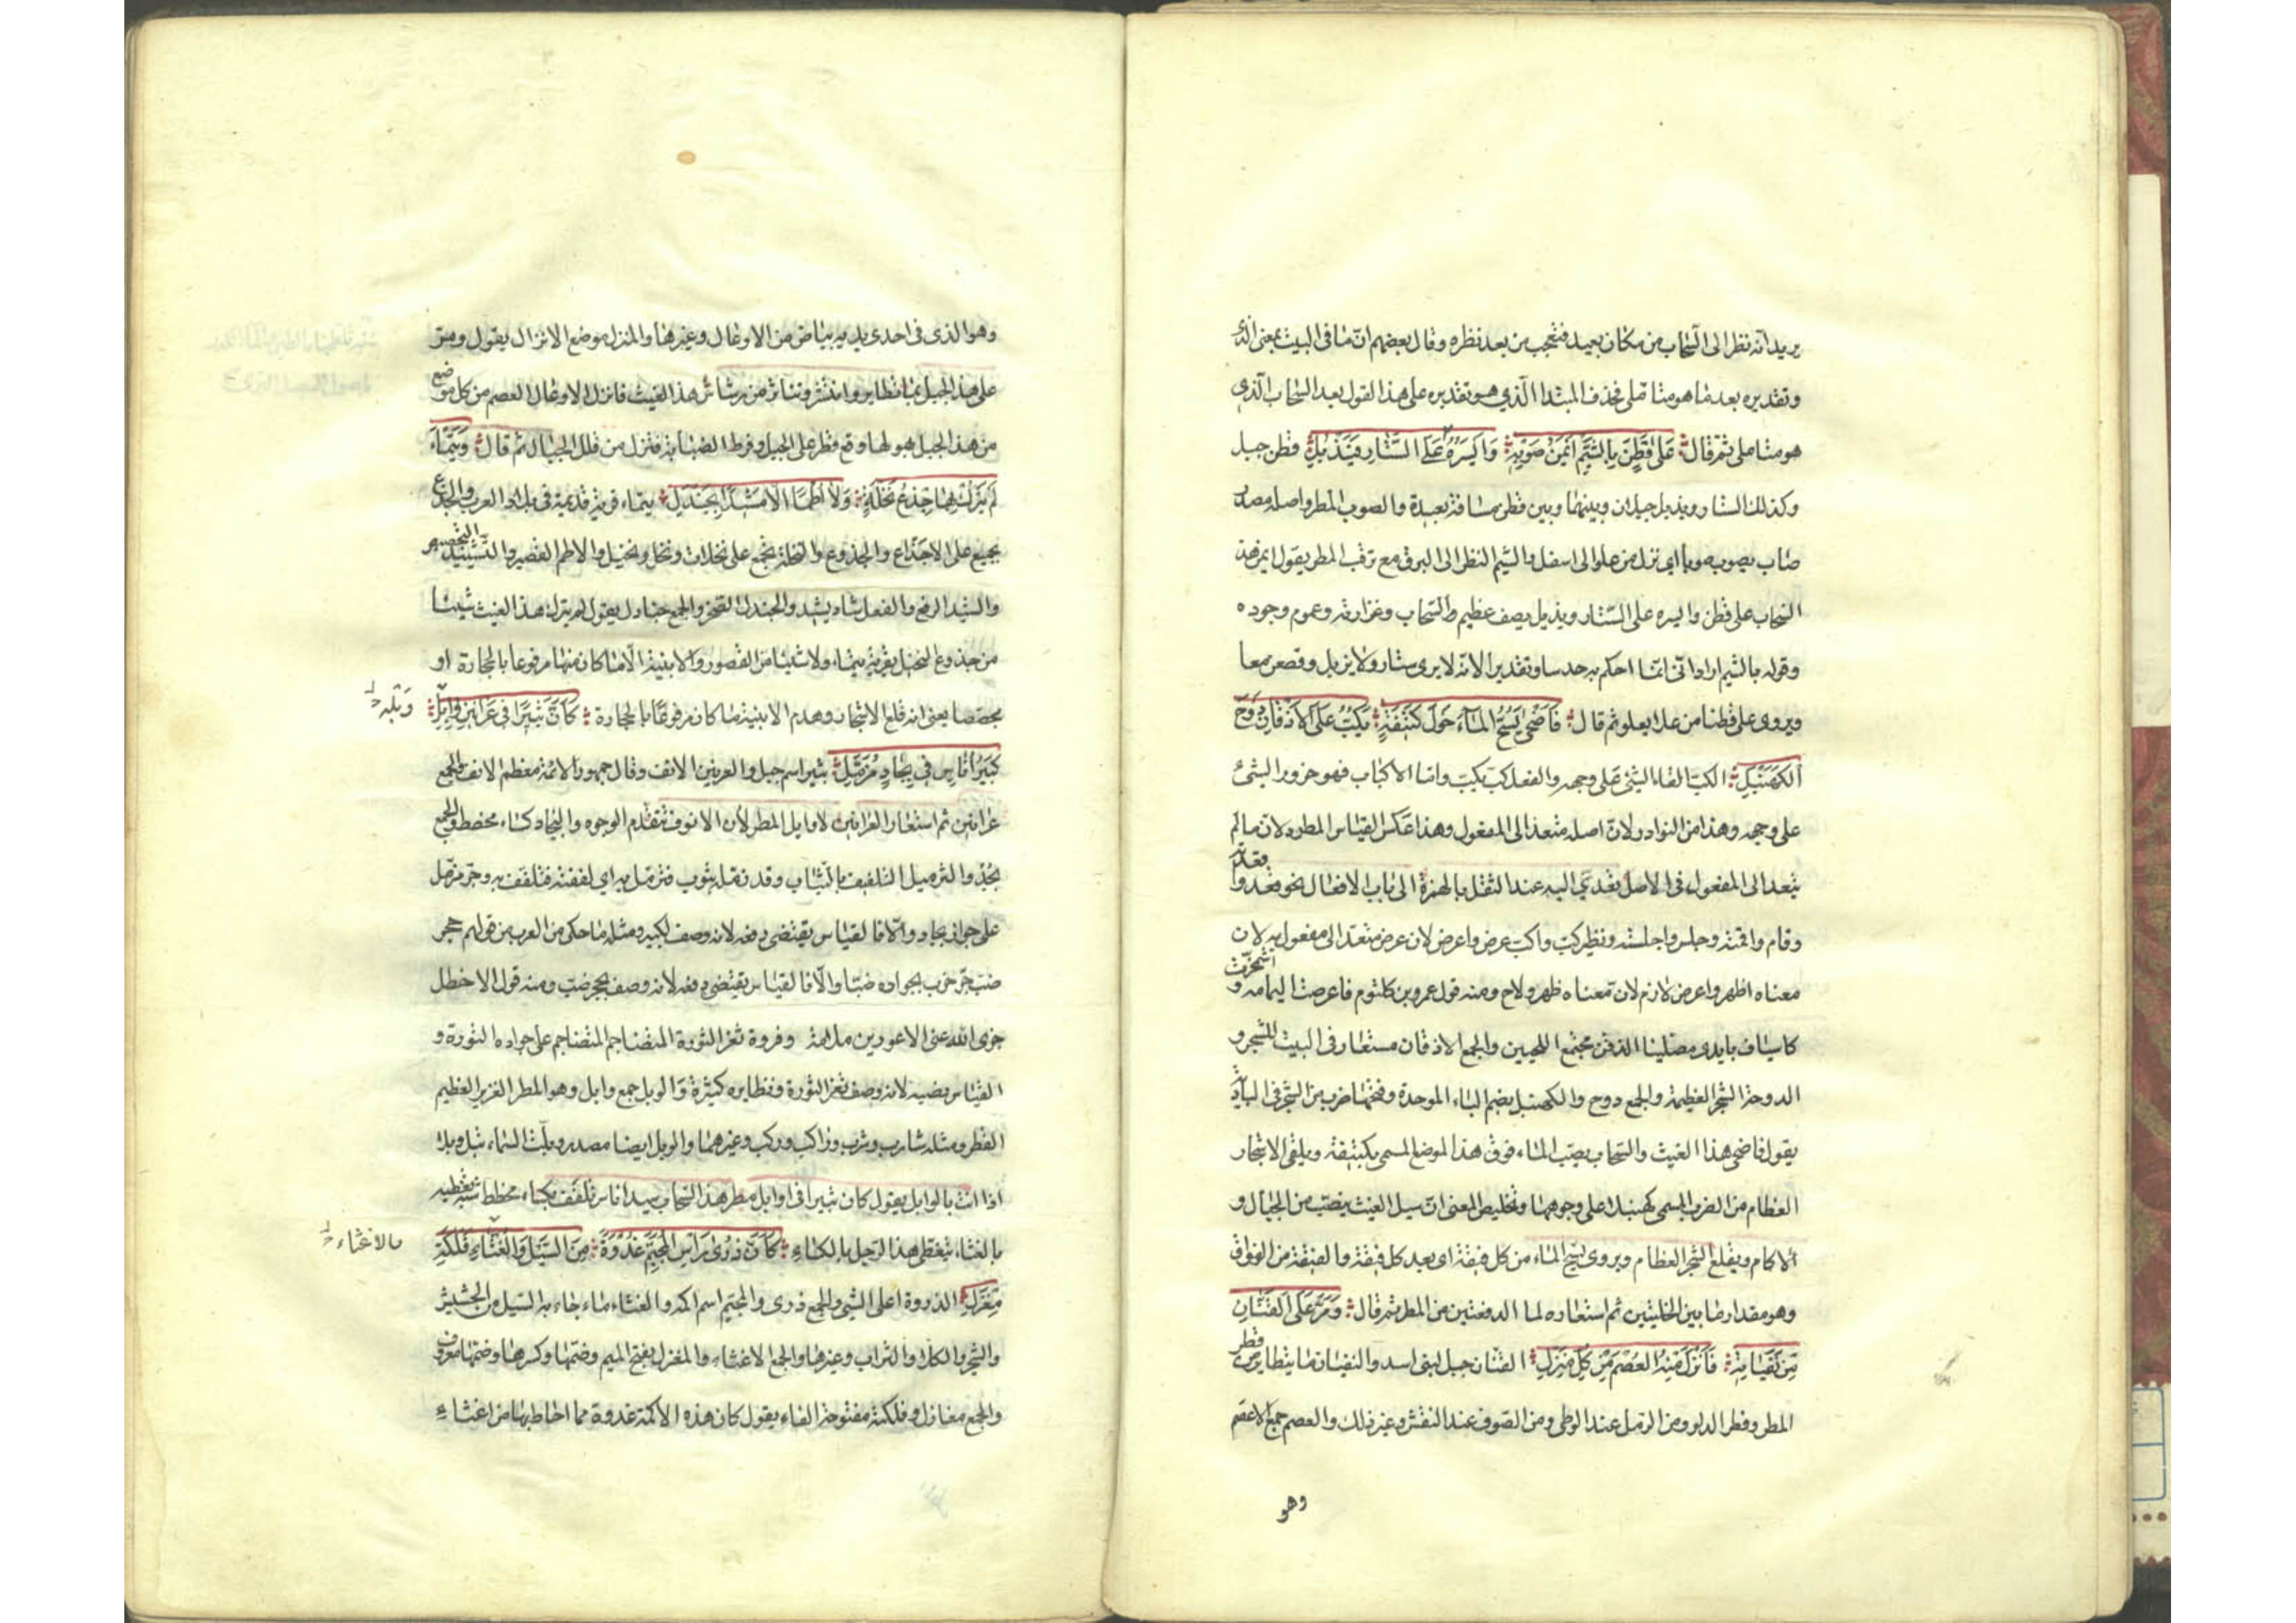 يريد انه نظر الى السحاب من مكان بعيد فتعجب من بعد نظره وقال بعضهم ان ما فى البيت بمعنى الذى
وتقديره بعد ما هو متاملى فحذف المبتدا الذي هو وتقديره على هذا القول بعد السحاب الذى
هو متاملى ثم قال عَلى قَطَنٍ بِالشَيْمِ اَيْمَنُ صَوْبِهِ وَاَيْسَرُهُ عَلَى السِّتَارِ فَيَذْبُلِ قطن جبل
وكذلك الستار ويذبل جبلان وبينهما وبين قطن مسافة بعيدة والصوب المطر واصله مصدر
صاب يصوب صوبا اى نزل من علو الى اسفل والشيم النظر الى البرق مع ترقب المطر يقول ايمن هذا
السحاب على قطن وايسره على الستار ويذبل يصف عظم السحاب وغزارته وعموم وجوده
وقوله بالشيم اراد انى انما احكم به حدسا وتقديرا لانه لا يرى ستار ولا يذبل وقطن معا
ويروى على قطنا من علا يعلو ثم قال فَاَضْحى يَسُحُّ الْمَآءَ حَوْلَ كُتَيْفَةٍ يَكُبُّ عَلَى الاَذْقَانِ دَوْحَ
الكَهَنْبَلِ الكب القاء الشئ على وجهه والفعل كب يكب واما الاكباب فهو خرور الشئ
على وجهه وهذا من النوادر لان اصله متعد الى المفعول وهذا عكس القياس المطرد لان ما لم
يتعد الى المفعول فى الاصل تعدى اليه عند النقل بالهمزة الى باب الافعال نحو قعد واقعدته
وقام واقمته وجلس واجلسته ونظير كب واكب عرض واعرض لان عرض متعد الى مفعول به لان
معناه اظهر واعرض لازم لان معناه ظهر ولاح ومنه قول عمرو بن كلثوم فاعرضت اليمامة واشمخرت
كاسياف بايدى مصلتينا الذقن مجتمع اللحيين والجمع الاذقان مستعار فى البيت للشجر و
الدوحة الشجر العظيمة والجمع دوح والكهنبل بضم الباء الموحدة وفتحها ضرب من الشجر فى البادية
يقول فاضحى هذا الغيث والسحاب يصب الماء فوق هذا الموضع المسمى بكتيفة ويلقى الاشجار
العظام من الضرب المسمى كهنبلا على وجوهها وتخليص المعنى ان سيل الغيث ينصب من الجبال و
الاكام ويقلع الشجر العظام ويروى يسح الماء من كل فيقة اى بعد كل فيقة والفيقة من الفواق
وهو مقدار ما بين الحلبتين ثم استعاره لما الدفعتين من المطر ثم قال وَمَرَّ عَلَى القَنَانِ
مِنْ نَفَيَانِهِ فَاَنْزَلَ مِنْهُ العُصْمَ مِنْ كُلِّ مَنْزِلِ القنان جبل لبنى اسد والنفيان ما يتطاير من قطر
المطر وقطر الدلو ومن الرمل عند الوطى ومن الصوف عند النفش وغير ذلك والعصم جمع الاعصم
وهو
وهو الذى فى احدى يديه بياض من الاوعال وغيرها والمنزل موضع الانزال يقول ومر
على هذا الجبل مما تطاير وانتشر وتناثر من رشاش هذا الغيث فانزل الاوعال العصم من كل موضع
من هذا الجبل هو لها وقع قطر على الجبل وفرط انصبابه فتنزل من قلل الجبال ثم قال وَتَيْمَآءَ
لَمْ يَتْرُكْ بِهَا جِذْعَ نَخْلَةٍ وَلَا اُطُمًا اِلَّا مَشِيْدًا بِجَنْدَلِ تيماء قرية قديمة فى بلاد العرب والجذع
يجمع على الاجذاع والجذوع والنخلة تجمع على نخلات ونخل ونخيل والاطم القصر والتشييد التجصيص
والشيد الرفع والفعل شاد يشيد والجندل الصخر والجمع جنادل يقول لم يترك هذا الغيث شيئا
من جذوع النخل بقرية تيماء ولا شيئا من القصور والابنية الا ما كان منها مرفوعا بالحجارة او
مجصصا يعنى انه قلع الاشجار وهدم الابنية ما كان مرفوعا بالحجارة كَاَنَّ ثَبِيْرًا فى عَرَانِيْنِ وَابِلِ وَبْلِهِ
كَبِيْرُ اُنَاسٍ فِي بِجَادٍ مُزَمَّلِ ثبير اسم جبل والعرنين الانف وقال جمهور الائمة معظم الانف والجمع
عرانين ثم استعار العرانين لاوايل المطر لان الانوف تتقدم الوجوه والبجاد كساء مخطط والجمع
بجد والتزميل التلفيف بالثياب وقد زملته بثوب فتزمل به اى لففته فتلفف به وجر مزمل
على جوار بجاد والا فالقياس يقتضى رفعه لانه وصف لكبير ومثله ما حكى من العرب من قولهم جحر
ضب خرب جر خرب بجواره ضبا والا فالقياس يقتضى رفعه لانه وصف جحر ضب ومنه قول الاخطل
جزى الله عنى الاعورين ملامة وفروة ثغر الثورة المتضاجم المتضاجم على جواره الثورة و
القياس نصبه لانه وصف ثغر الثورة ونظايره كثيرة والوبل جمع وابل وهو المطر الغزير العظيم
القطر ومثله شارب وشرب وراكب وركب وغيرهما والوبل ايضا مصدر وبلت السماء تبل وبلا
اذا اتت بالوابل يقول كان ثبيرا فى اوايل مطر هذا السحاب سيد اناس تلفف بكساء مخطط شبه تغطيه
بالغثاء بتغطى هذا الرجل بالكساء كَاَنَّ ذُرى رَاْسِ الْمُجَيْمِرِ غُدْوَةً مِنَ السَّيْلِ وَالْغُثَّاءِ فَلْكَةُ والاغثاء
مِغْزَلِ الذروة اعلى الشئ والجمع ذرى والمجيمر اسم اكمة والغثاء ما جاء به السيل من الحشيش
والشجر والكلاء والتراب وغيرها والجمع الاغثاء والمغزل بفتح الميم وضمها وكسرها وضمها معروف
والجمع مغازل وفلكة مفتوحة الفاء يقول كان هذه الاكمة غدوة مما احاط بها من اغثاء